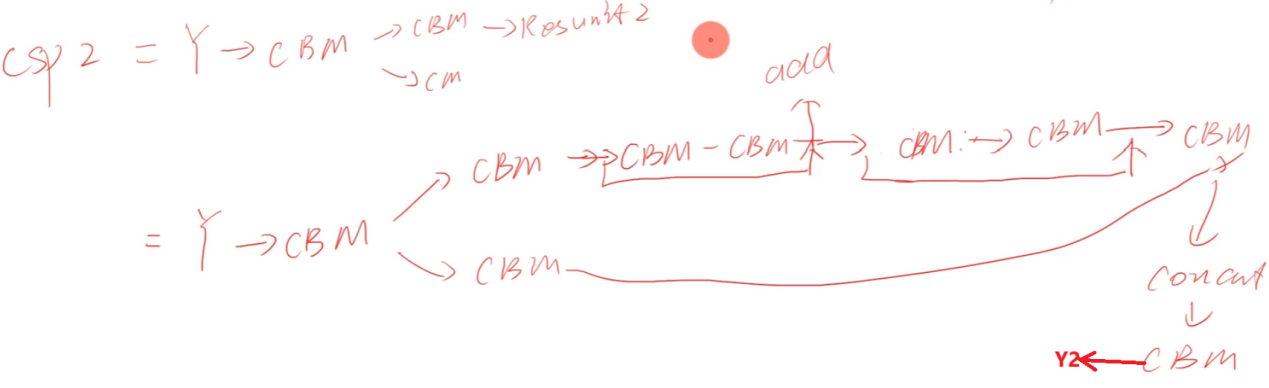 csp2 = Y → CBM → CBM → Resunit2
→ CM
add
CBM → CBM - CBM → CBM → CBM → CBM
= Y → CBM
→ CBM
Concat
Y2 ← CBM